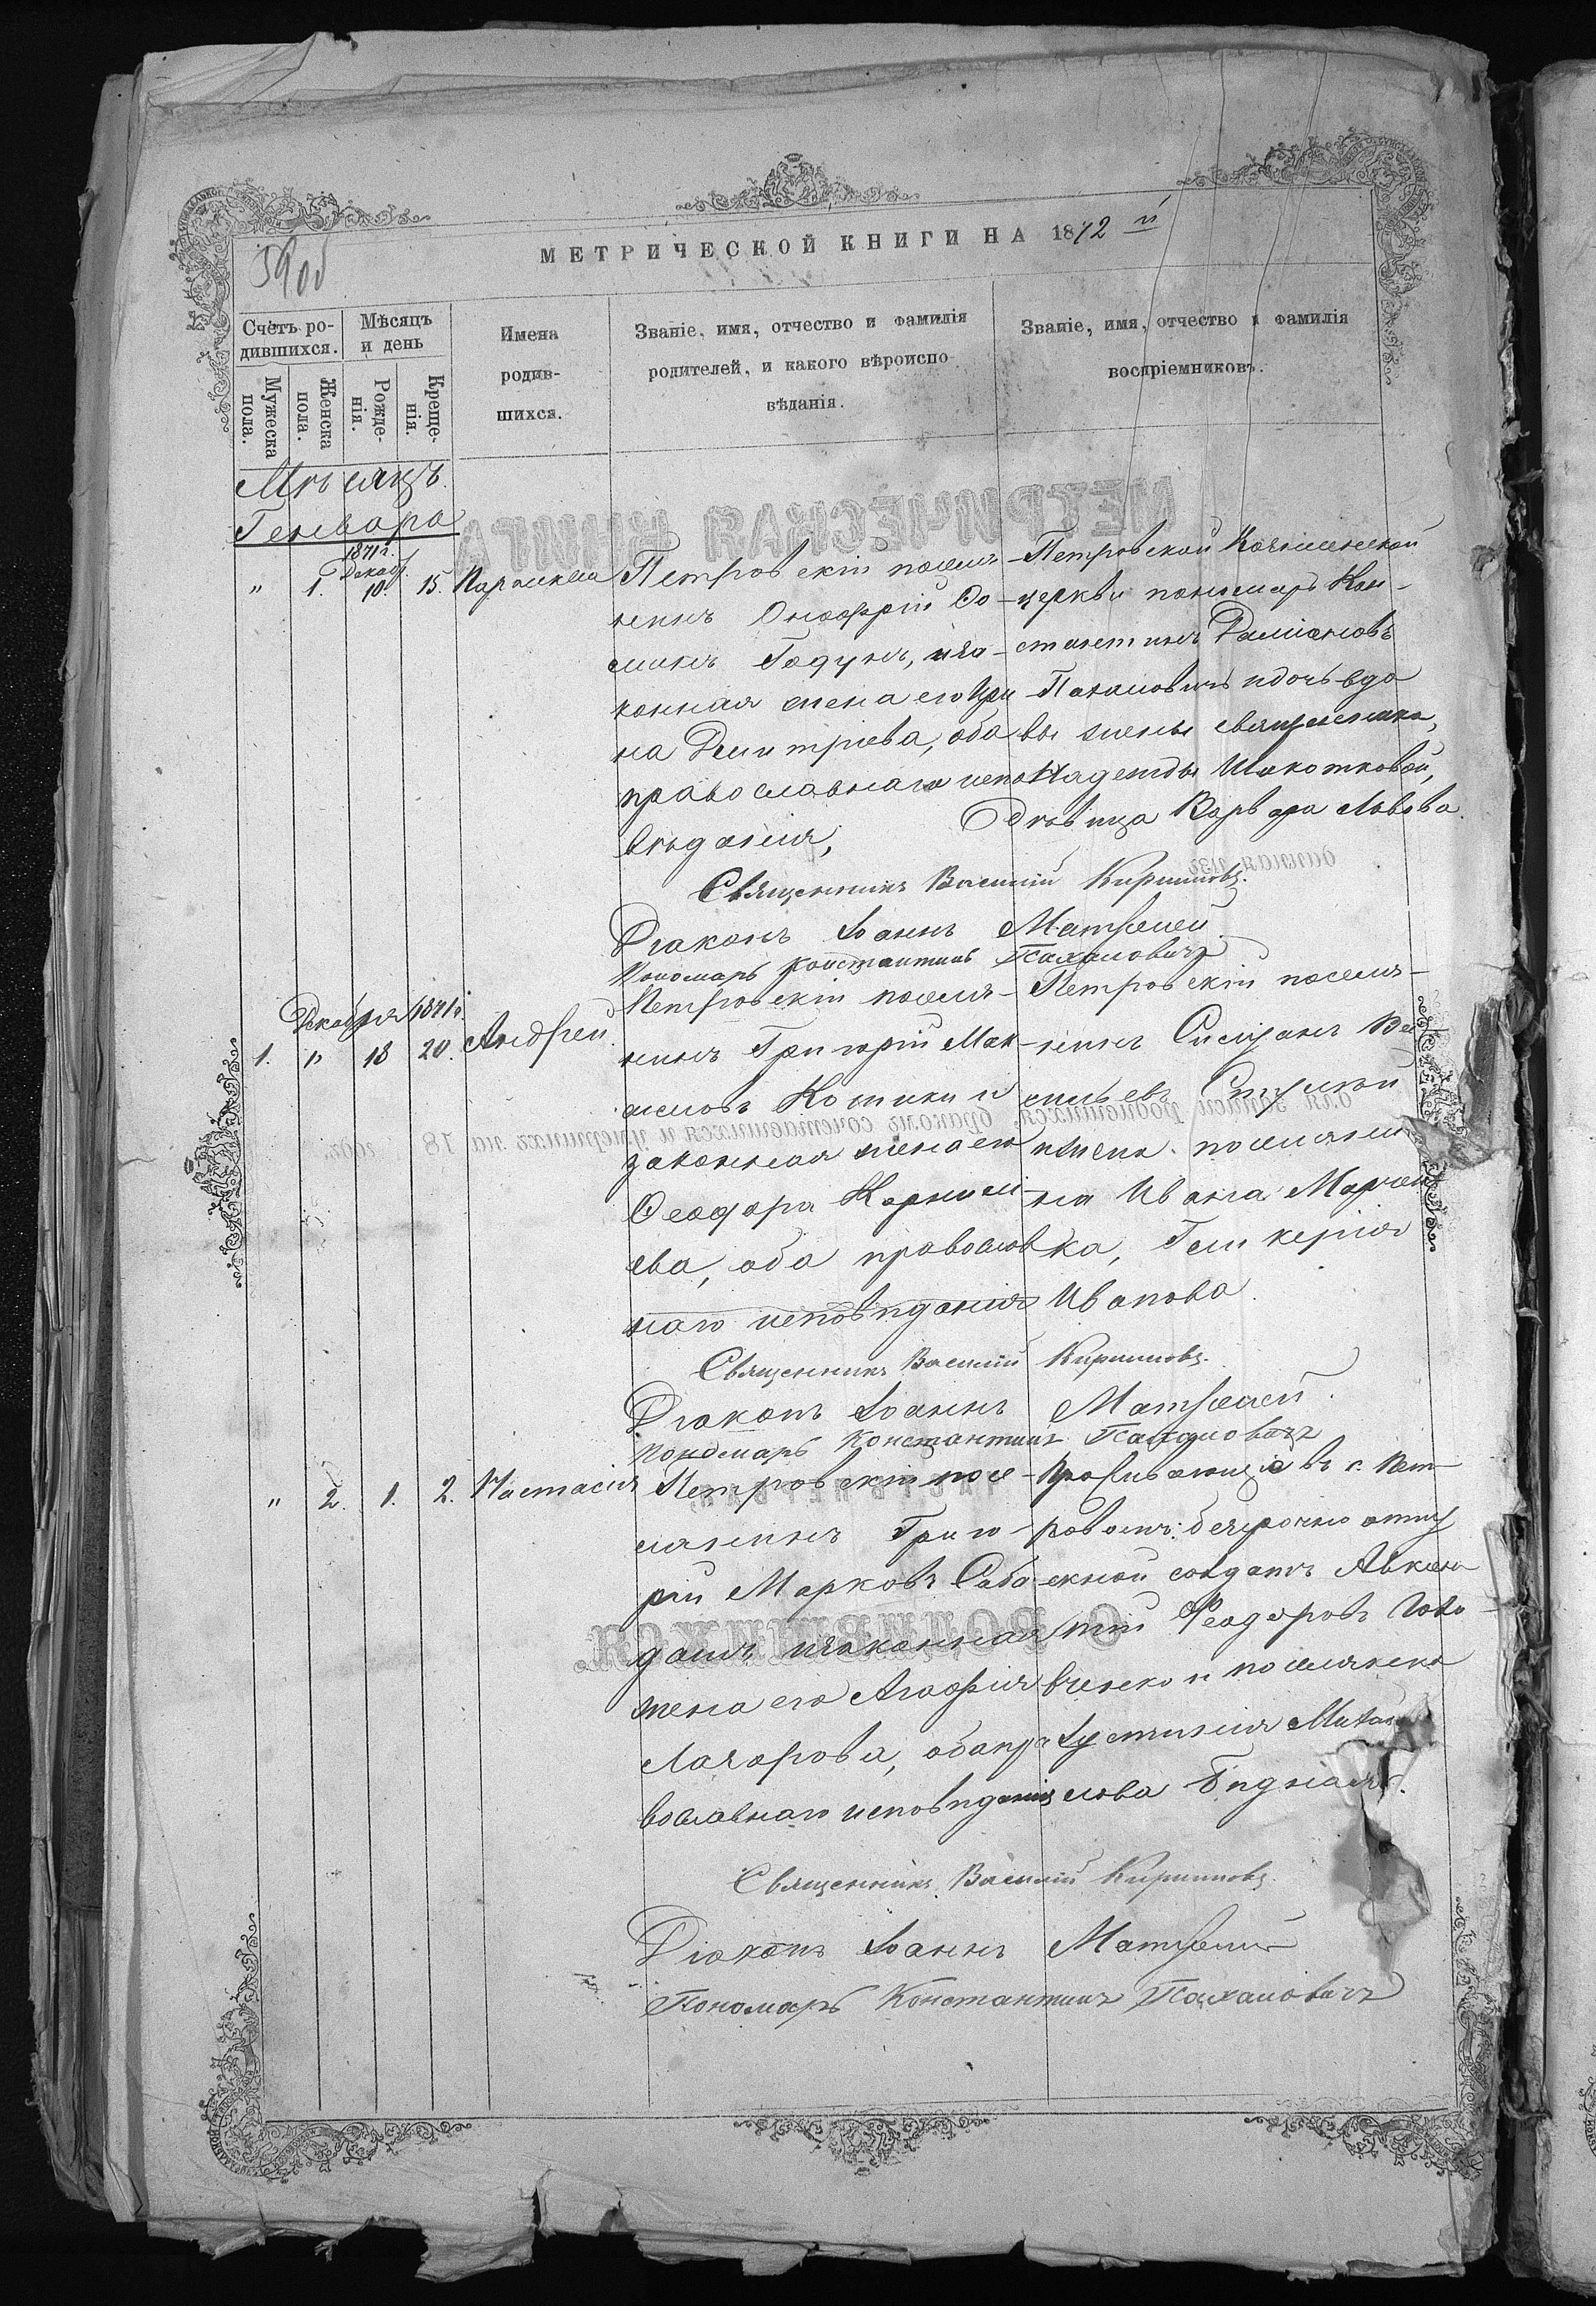 59 об
МЕТРИЧЕСКОЙ КНИГИ НА 1872 й
Счетъ ро-
дившихся.
Мужеска пола.
Женска пола.
Мѣсяцъ
и день
Рожде-
нія.
Креще-
нія.
Имена
родив-
шихся.
Званіе, имя, отчество и фамилія
родителей, и какого вѣроиспо
вѣданія.
Званіе, имя, отчество и фамилія
воспріемниковъ.
Мѣсяцъ
Генваръ
1871 г.
Декабр.
" 1. 10. 15. Параскева
Петровскій поселя-
нинъ Онофрій Фо-
минъ Годунъ, и за-
конная жена его Ири
на Димитріева, оба
православнаго испо
вѣданія,
Петровской
церкви пономарь Кон-
стантинъ Даміановъ
Пахаловичъ и дочь вдо
вы жены священника,
Надежды
Дѣвица Варвара Львова.
Священникъ Василій Кирилловъ.
Діаконъ Іоаннъ
Пономарь Константинъ Пахаловичъ
Декабря 1871 г.
1. " 18 20. Андрей.
Петровскій поселя-
нинъ Григорій Мак-
симовъ и
законная жена его
Феодора Корнили-
ева, оба православ
наго исповѣданія
Петровскій поселя-
нинъ Симеонъ Ва
сильевъ
и жена поселяни
на Ивана Марчен
ка, Гликерія
Иванова.
Священникъ Василій Кирилловъ.
Діаконъ Іоаннъ
Пономарь Константинъ Пахаловичъ
" 2. 1. 2. Настасія
Петровскій посе-
лянинъ Григо-
рій Марковъ Саба
дашъ и законная
жена его Агафія
Лазарова, оба пра
вославнаго исповѣданія
Проживающіе въ с. Пет-
ровомъ: безсрочно отпу
скной солдатъ Авксен
тій Феодоровъ Голо-
вченко и поселянка
Іустинія Михай
лова Бѣдная.
Священникъ Василій Кирилловъ.
Діаконъ Іоаннъ
Пономарь Константинъ Пахаловичъ